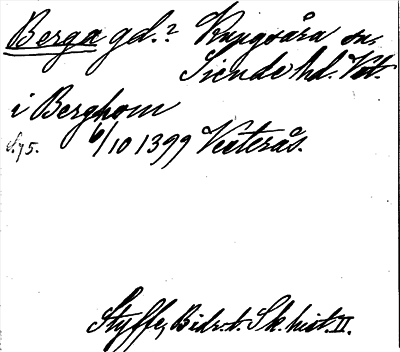 Berga gd.? Kungsåra sn.
Siende hd. Vstm.
i Berghom
S. 75. 6/10 1399 Vesterås.
Styffe, Bidr. t. Sk. hist. II.